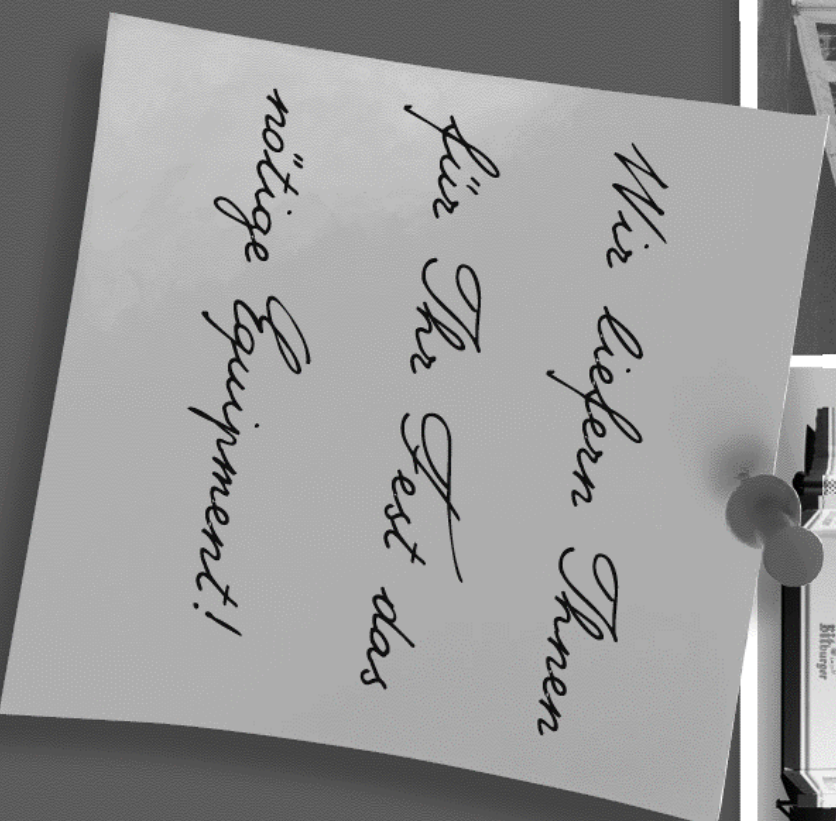 Wir liefern Ihnen
für Ihr Fest das
nötige Equipment!
Bitburger